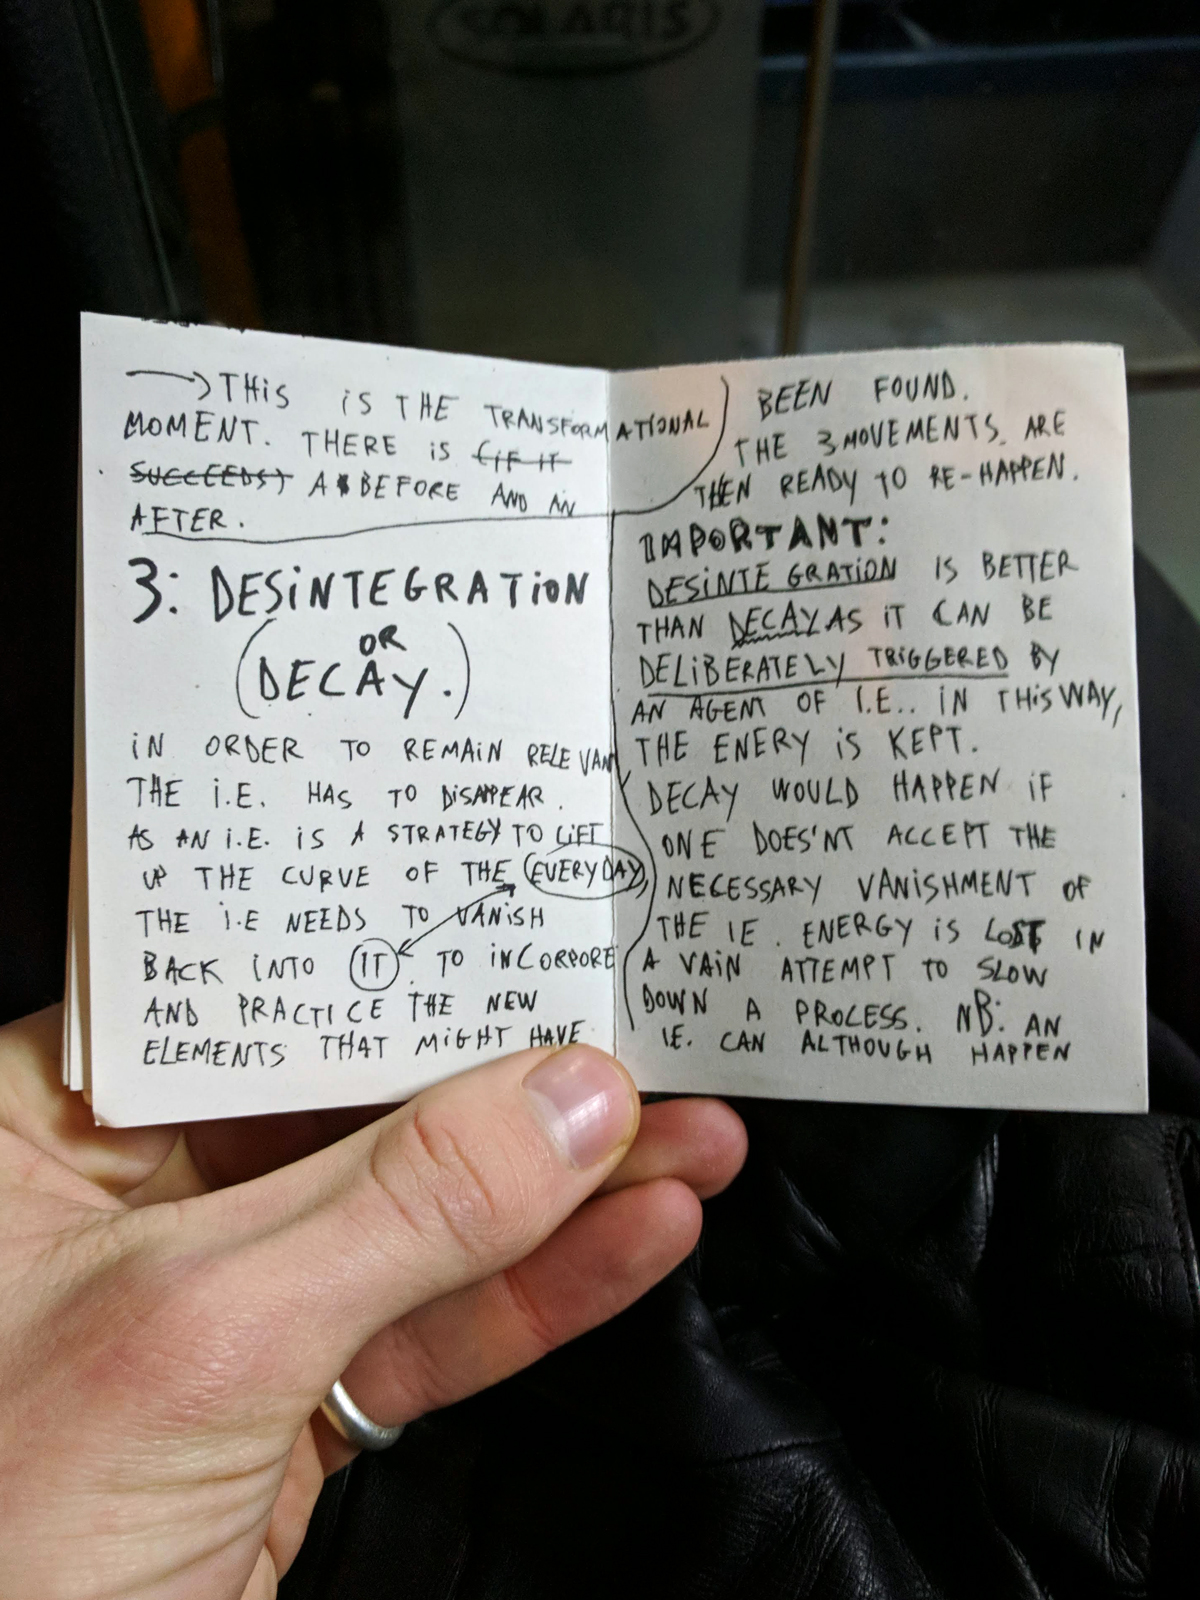 SOLARIS
→ THIS IS THE TRANSFORMATIONAL
MOMENT. THERE IS (IF IT
SUCCEEDS) A BEFORE AND AN
AFTER.
3: DESINTEGRATION
(OR
DECAY.)
IN ORDER TO REMAIN RELEVAN
THE i.E. HAS TO DISAPPEAR.
AS AN i.E. IS A STRATEGY TO LIFT
UP THE CURVE OF THE EVERYDAY,
THE i.E NEEDS TO VANISH
BACK INTO IT. TO INCORPORE
AND PRACTICE THE NEW
ELEMENTS THAT MIGHT HAVE
BEEN FOUND.
THE 3 MOVEMENTS. ARE
THEN READY TO RE-HAPPEN.
IMPORTANT:
DESINTEGRATION IS BETTER
THAN DECAY AS IT CAN BE
DELIBERATELY TRIGGERED BY
AN AGENT OF I.E.. IN THIS WAY,
THE ENERY IS KEPT.
DECAY WOULD HAPPEN IF
ONE DOES'NT ACCEPT THE
NECESSARY VANISHMENT OF
THE IE. ENERGY IS LOST IN
A VAIN ATTEMPT TO SLOW
DOWN A PROCESS. NB: AN
IE. CAN ALTHOUGH HAPPEN